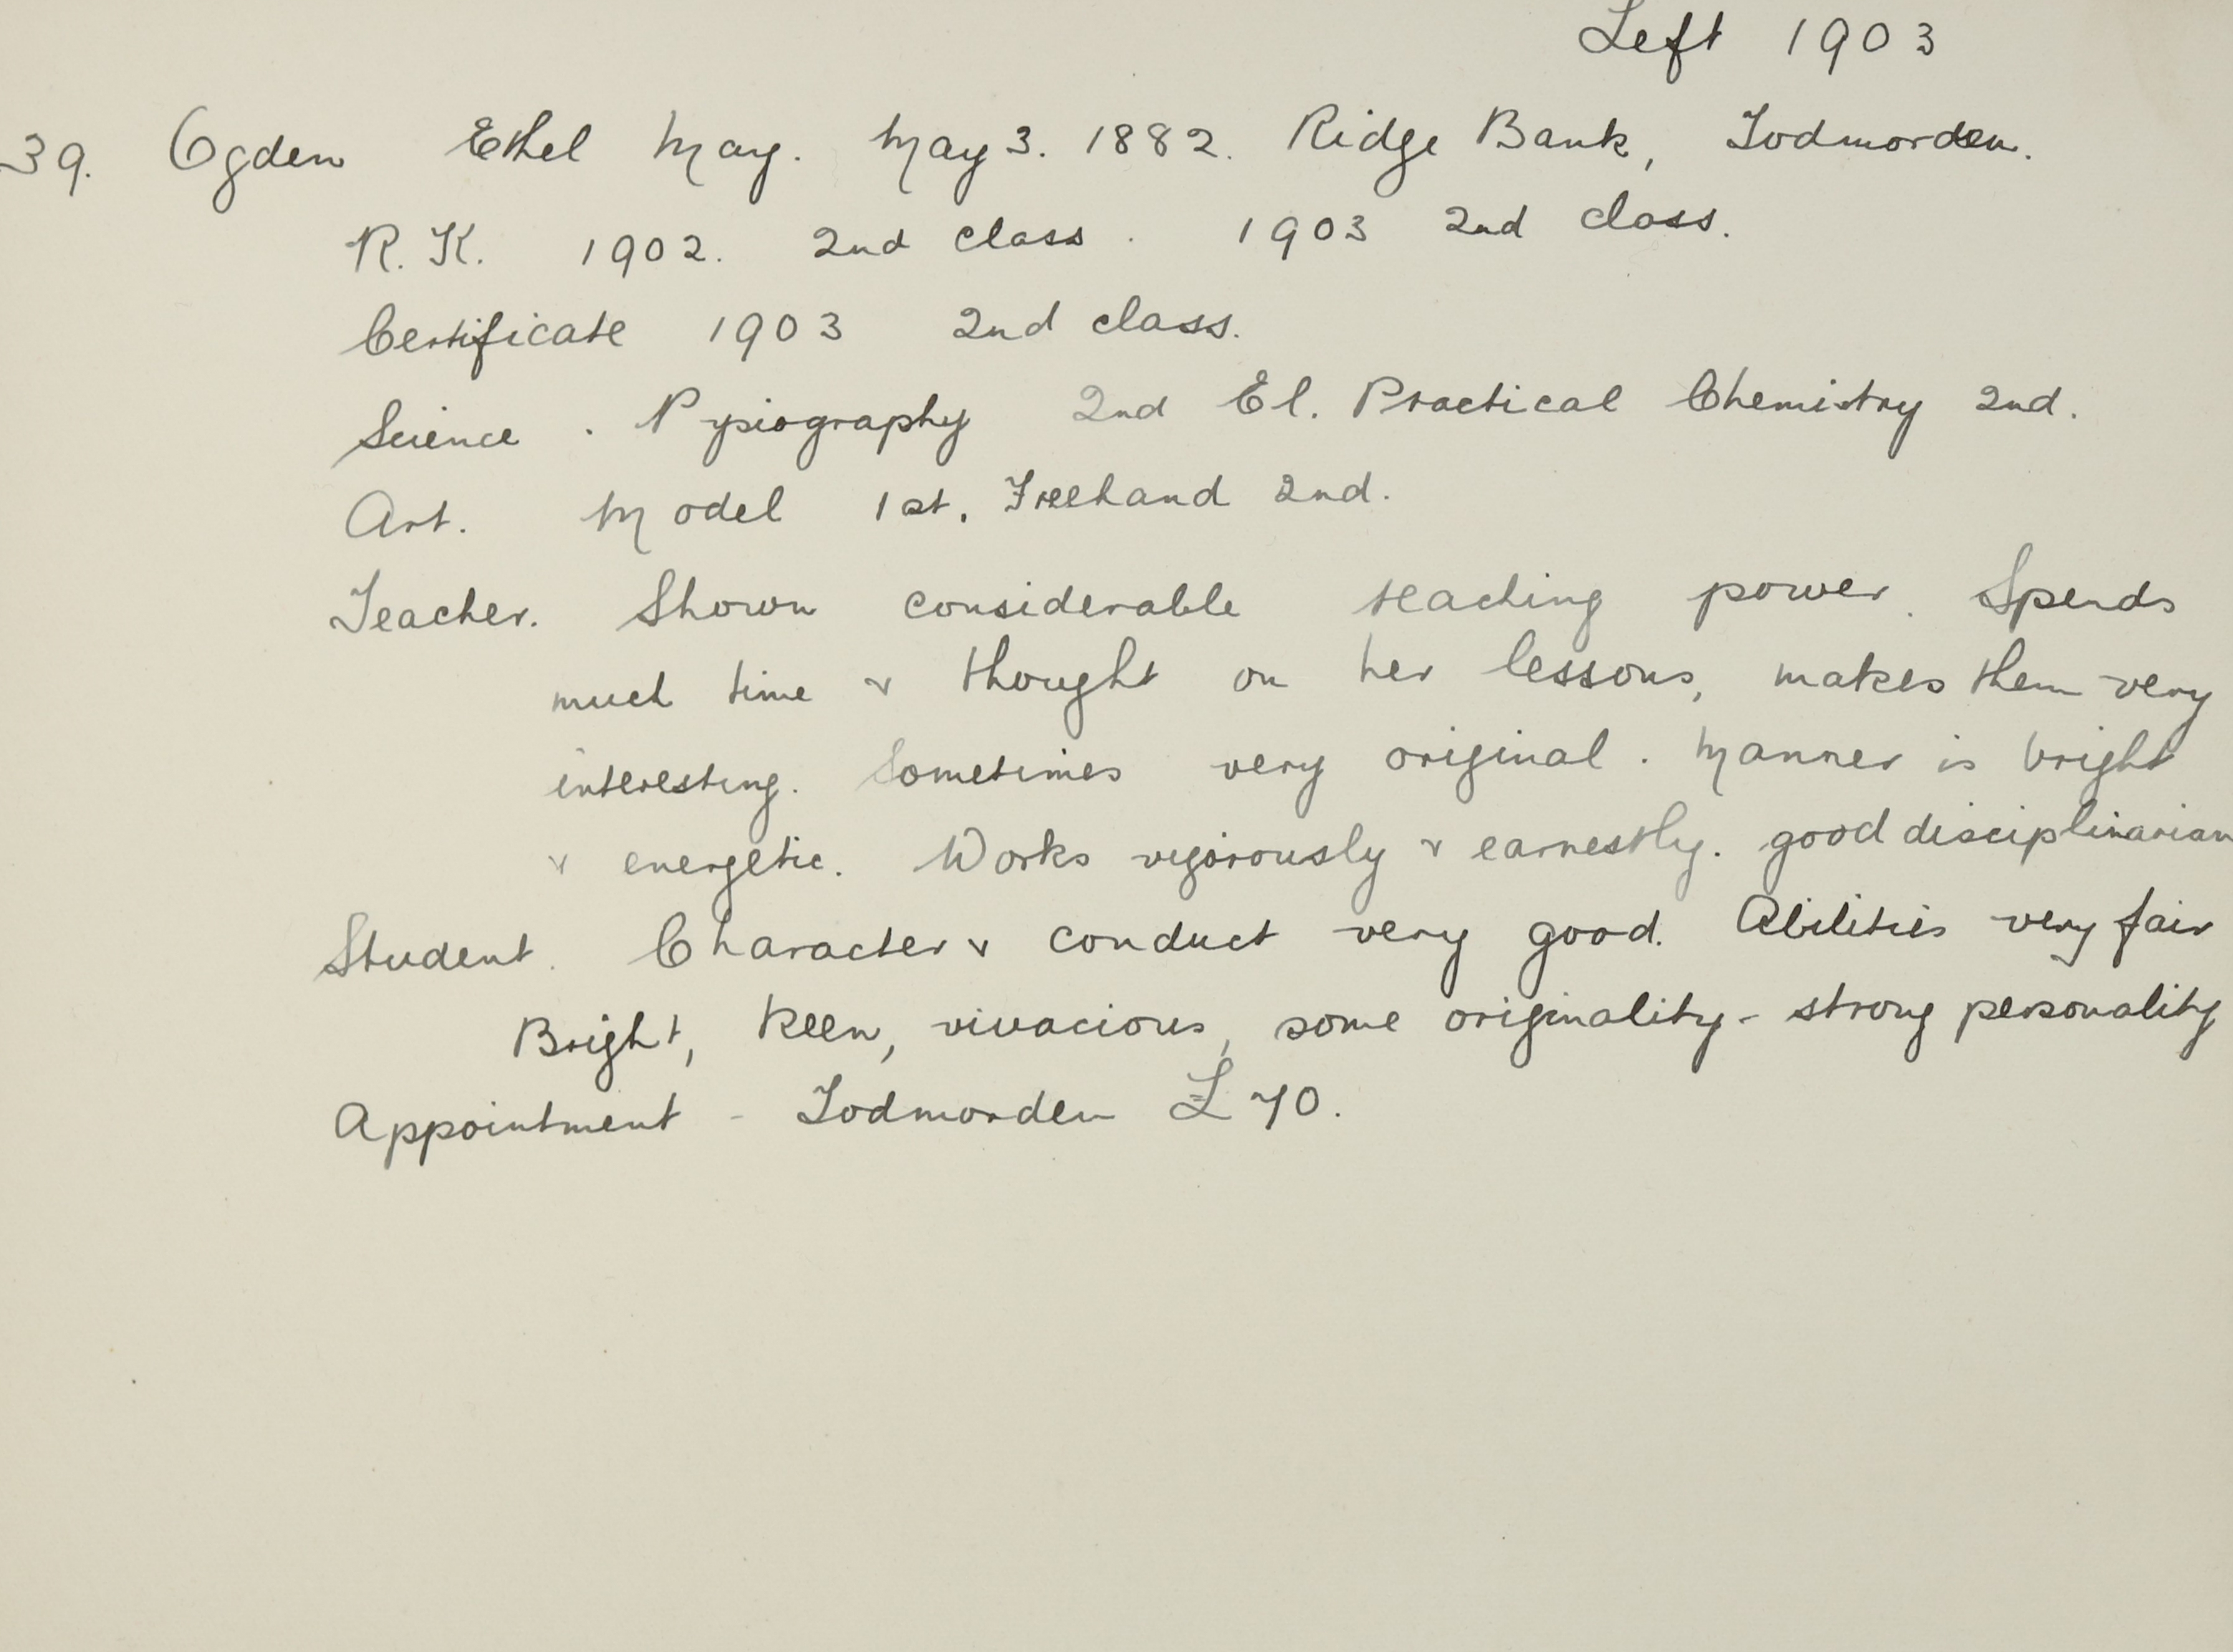 Left 1903
39. Ogden Ethel May. May 3. 1882. Ridge Bank, Todmorden.
R.K. 1902. 2nd class. 1903 2nd class.
Certificate 1903 2nd class.
Science. Pysiography 2nd El. Practical Chemistry 2nd.
Art. Model 1st. Freehand 2nd.
Teacher. Shown considerable teaching power. Spends
much time & thought on her lessons, makes them very
interesting. Sometimes very original. Manner is bright
& energetic. Works vigorously & earnestly. good disciplinarian
Student. Character & conduct very good. Abilities very fair
Bright, keen, vivacious, some originality - strong personality
Appointment - Todmorden £70.